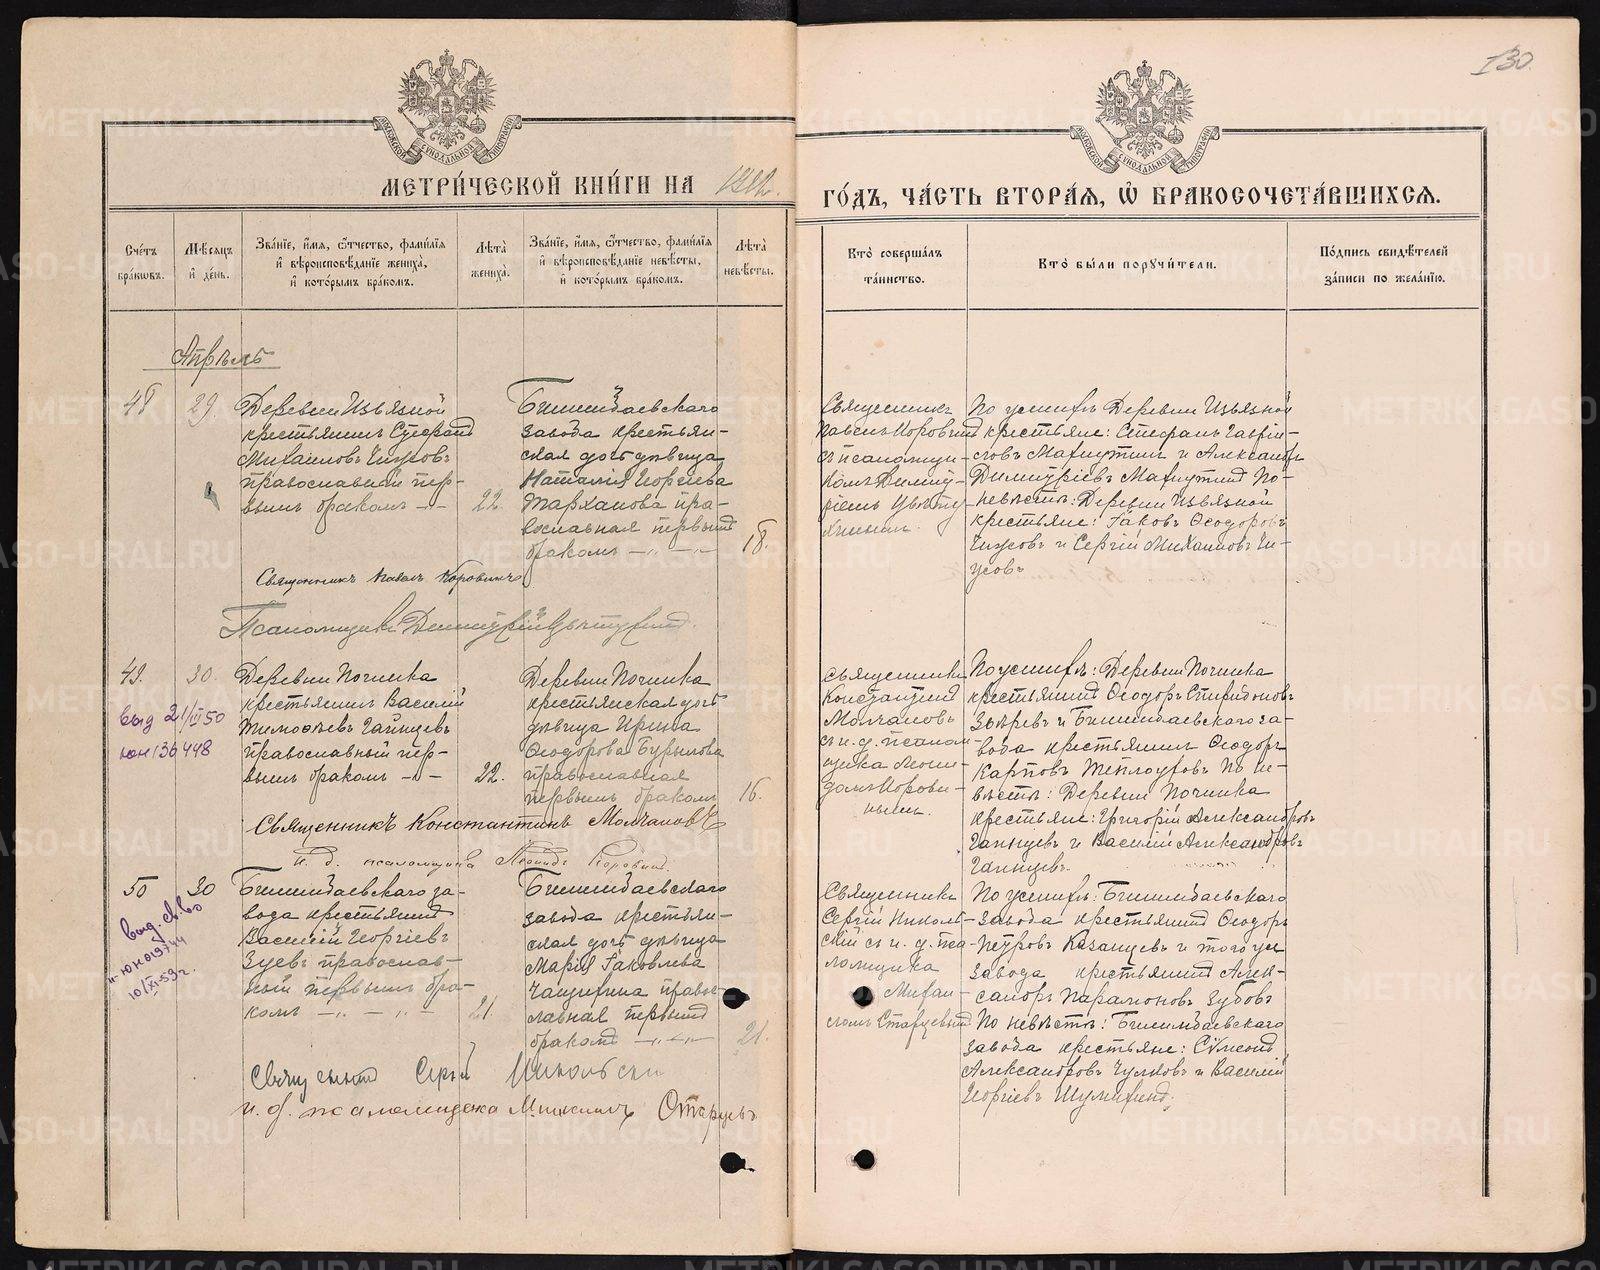 130.
МОСКОВСКОЙ СѴНОДАЛЬНОЙ ТИПОГРАФІИ
МОСКОВСКОЙ СѴНОДАЛЬНОЙ ТИПОГРАФІИ
МЕТРИ́ЧЕСКОЙ КНИ́ГИ НА
ГО́ДЪ, ЧА́СТЬ ВТОРА́Я, Ѽ БРАКОСОЧЕТА́ВШИХСЯ.
Сче́тъ бра́ковъ.
Мѣ́сяцъ и҆ де́нь.
Зва́нїе, и҆́мя, ѻ҆́тчество, фами́лїя и҆ вѣроисповѣ́данїе жениха̀, и҆ кото́рымъ бра́комъ.
Лѣ́та жениха̀.
Зва́нїе, и҆́мя, ѻ҆́тчество, фами́лїя и҆ вѣроисповѣ́данїе невѣ́сты, и҆ кото́рымъ бра́комъ.
Лѣ́та невѣ́сты.
Кто̀ соверша́лъ та́инство.
Кто̀ бы́ли порꙋчи́тели.
По́дпись свидѣ́телей за́писи по жела́нїю.
Апрѣль
48
29.
Деревни Извязной
крестьянинъ Стефанъ
Михаиловъ Чусовъ
православный пер-
вымъ бракомъ
22.
Билимбаевскаго
завода крестьян-
ская дочь дѣвица
Наталія Георгіева
Тарханова пра-
вославная первымъ
бракомъ
18.
Священникъ
Павелъ Коровинъ
съ псаломщи-
комъ Димит-
ріемъ
По женихѣ: Деревни Извязной
крестьяне: Стефанъ Гаврiи-
ловъ Махнутинъ и Александръ
Димитріевъ Махнутинъ По-
невѣстѣ: Деревни Извязной
крестьяне: Іаковъ Ѳеодоровъ
Чусовъ и Сергій Михаиловъ Чу-
совъ
Священникъ Павелъ Коровинъ
Псаломщикъ Димитрій
49.
30.
выд 21/III 50
юн 136448
Деревни Починка
крестьянинъ Василій
Тимоѳеевъ Галицевъ
православный пер-
вымъ бракомъ
22.
Деревни Починка
крестьянская дочь
дѣвица Ирина
Ѳеодорова Бурылова
православная
первымъ бракомъ
16.
Священникъ
Константинъ
Молчановъ
съ и. д. псалом-
щика Леони-
домъ Корови-
нымъ.
По женихѣ: Деревни Починка
крестьянинъ Ѳеодоръ Спиридоновъ
Звѣревъ и Билимбаевскаго за-
вода крестьянинъ Ѳеодоръ
Карповъ Теплоуховъ По не-
вѣстѣ: Деревни Починка
крестьяне: Григорій Александровъ
Галицевъ и Василій Александровъ
Галицевъ.
Священникъ Константинъ Молчановъ
И. д. псаломщика Леонидъ Коровинъ.
50
30
выд. св-во
10/XI-53 г.
Билимбаевскаго за-
вода крестьянинъ
Василій Георгіевъ
Зуевъ православ-
ный первымъ бра-
комъ
21.
Билимбаевскаго
завода крестьян-
ская дочь дѣвица
Марія Іаковлева
Чащихина право-
славная первымъ
бракомъ
21.
Священникъ
Сергій Николь-
скій съ и. д. пса-
ломщика
Михаи-
ломъ Старцевымъ
По женихѣ: Билимбаевскаго
завода крестьянинъ Ѳеодоръ
Петровъ Казанцевъ и того же
завода крестьянинъ Алек-
сандръ Парамоновъ Зубовъ
По невѣстѣ: Билимбаевскаго
завода крестьяне: Сѵмеонъ
Александровъ Чулковъ и Василій
Георгіевъ Шумихинъ.
Священникъ Сергій Никольскій
и. д. псаломщика Михаилъ Старцевъ
METRIKI.GASO-URAL.RU